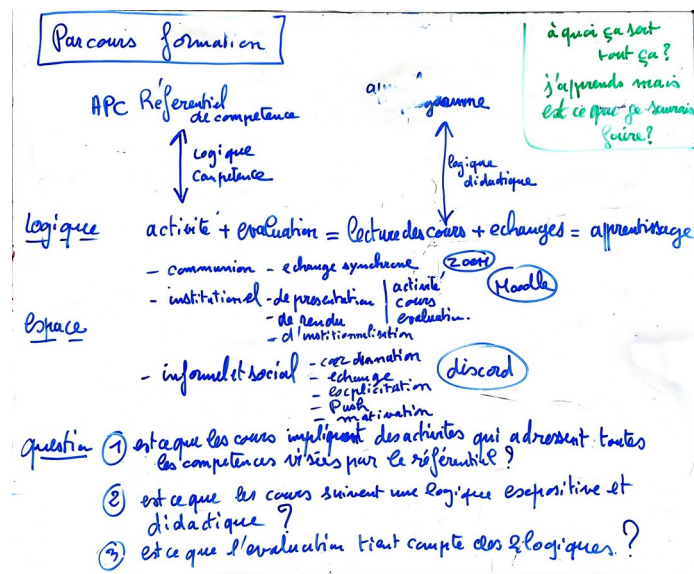 Parcours formation
à quoi ça sert
tout ça?
j'apprends mais
est ce que je saurais
faire?
APC Réferentiel
de competence
programme
Logique
Competence
logique
didactique
Logique activité + evaluation = lecture des cours + echanges = apprentissage
- communion - echange synchrone ZOOM
- institutionel - de presentation activité Moodle
cours
- de rendu evaluation.
- d'institutionnalisation
Espace
- informel et social - coordination discord
- echange
- explicitation
- Push
- motivation
question 1 est ce que les cours impliquent des activites qui adressent toutes
les competences visées par le référentiel?
2 est ce que les cours suivent une logique expositive et
didactique?
3 est ce que l'evaluation tient compte des 2 logiques?